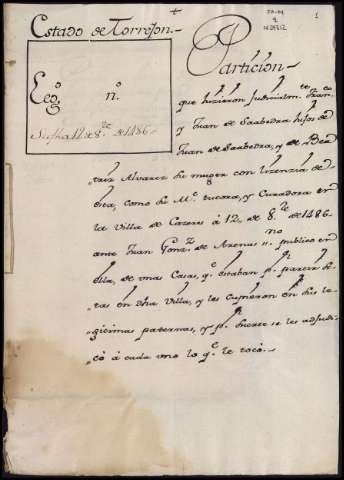 Estado de Torrejon.
Leg.º n.º
Su fha 12 de 8.re de 1486.
1
Particion
que hizieron Judicialm.te Fran.co
y Juan de Saabedra hijos de
Juan de Saabedra, y de Bea
triz Alvarez su muger con lizenzia de
esta, como su M.e tutora, y Curadora en
la Villa de Cazeres à 12 de 8.re de 1486.
ante Juan Gonz.z de Arenas n.no publico en
ella, de unas Casas, q.e estaban p.r partir
tas en dha Villa, y les Cupieron en sus le
gitimas paternas, y p.r suerte se les adjudi
có à cada uno lo q.e le tocò.